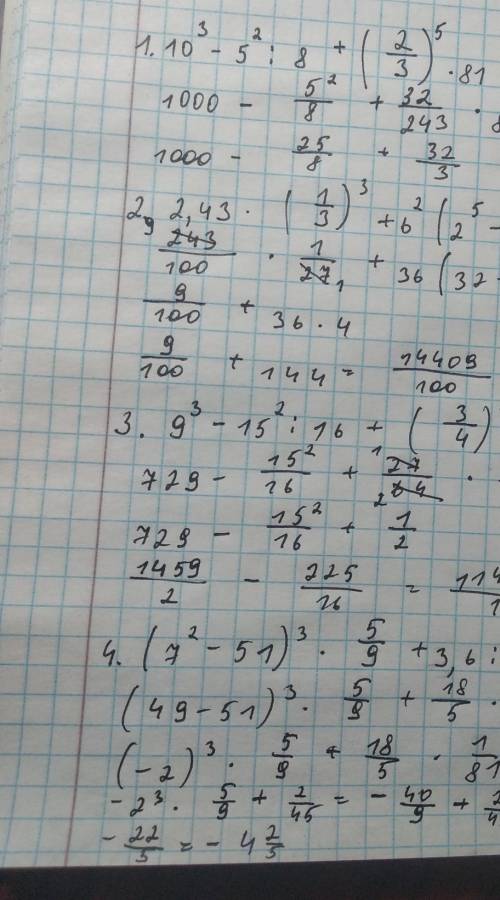 1. 10³ - 5² : 8 + (2/3)⁵ · 81
1000 - 5²/8 + 32/243 · 8
1000 - 25/8 + 32/3
2. 2,43 · (1/3)³ + 6² (2⁵ -
9 243/100 · 1/27 1 + 36 (32 -
9/100 + 36 · 4
9/100 + 144 = 14409/100
3. 9³ - 15² : 16 + (3/4)
729 - 15²/16 + 1 27/2 64 ·
729 - 15²/16 + 1/2
1459/2 - 225/16 = 114/1
4. (7² - 51)³ · 5/9 + 3,6 :
(49 - 51)³ · 5/9 + 18/5 ·
(-2)³ · 5/9 + 18/5 · 1/81
- 2³ · 5/9 + 2/45 = - 40/9 + 2/4
- 22/5 = - 4 2/5